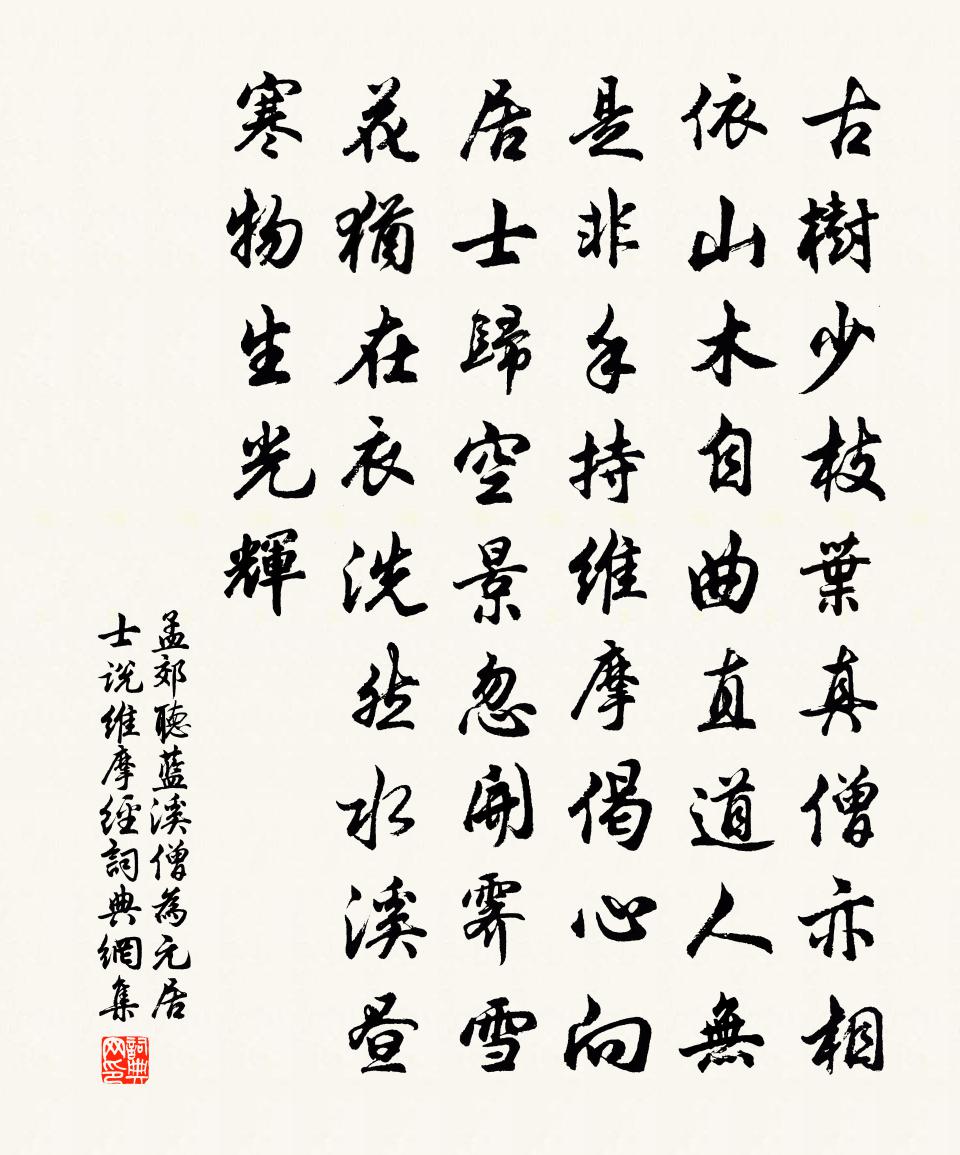 古樹少枝葉真僧亦相
依山木自曲直道人無
是非手持維摩偈心向
居士歸空景忽開霽雪
花猶在衣洗然水溪昼
寒物生光輝
孟郊聽藍溪僧為元居
士说維摩經詞典網集
詞典
网印